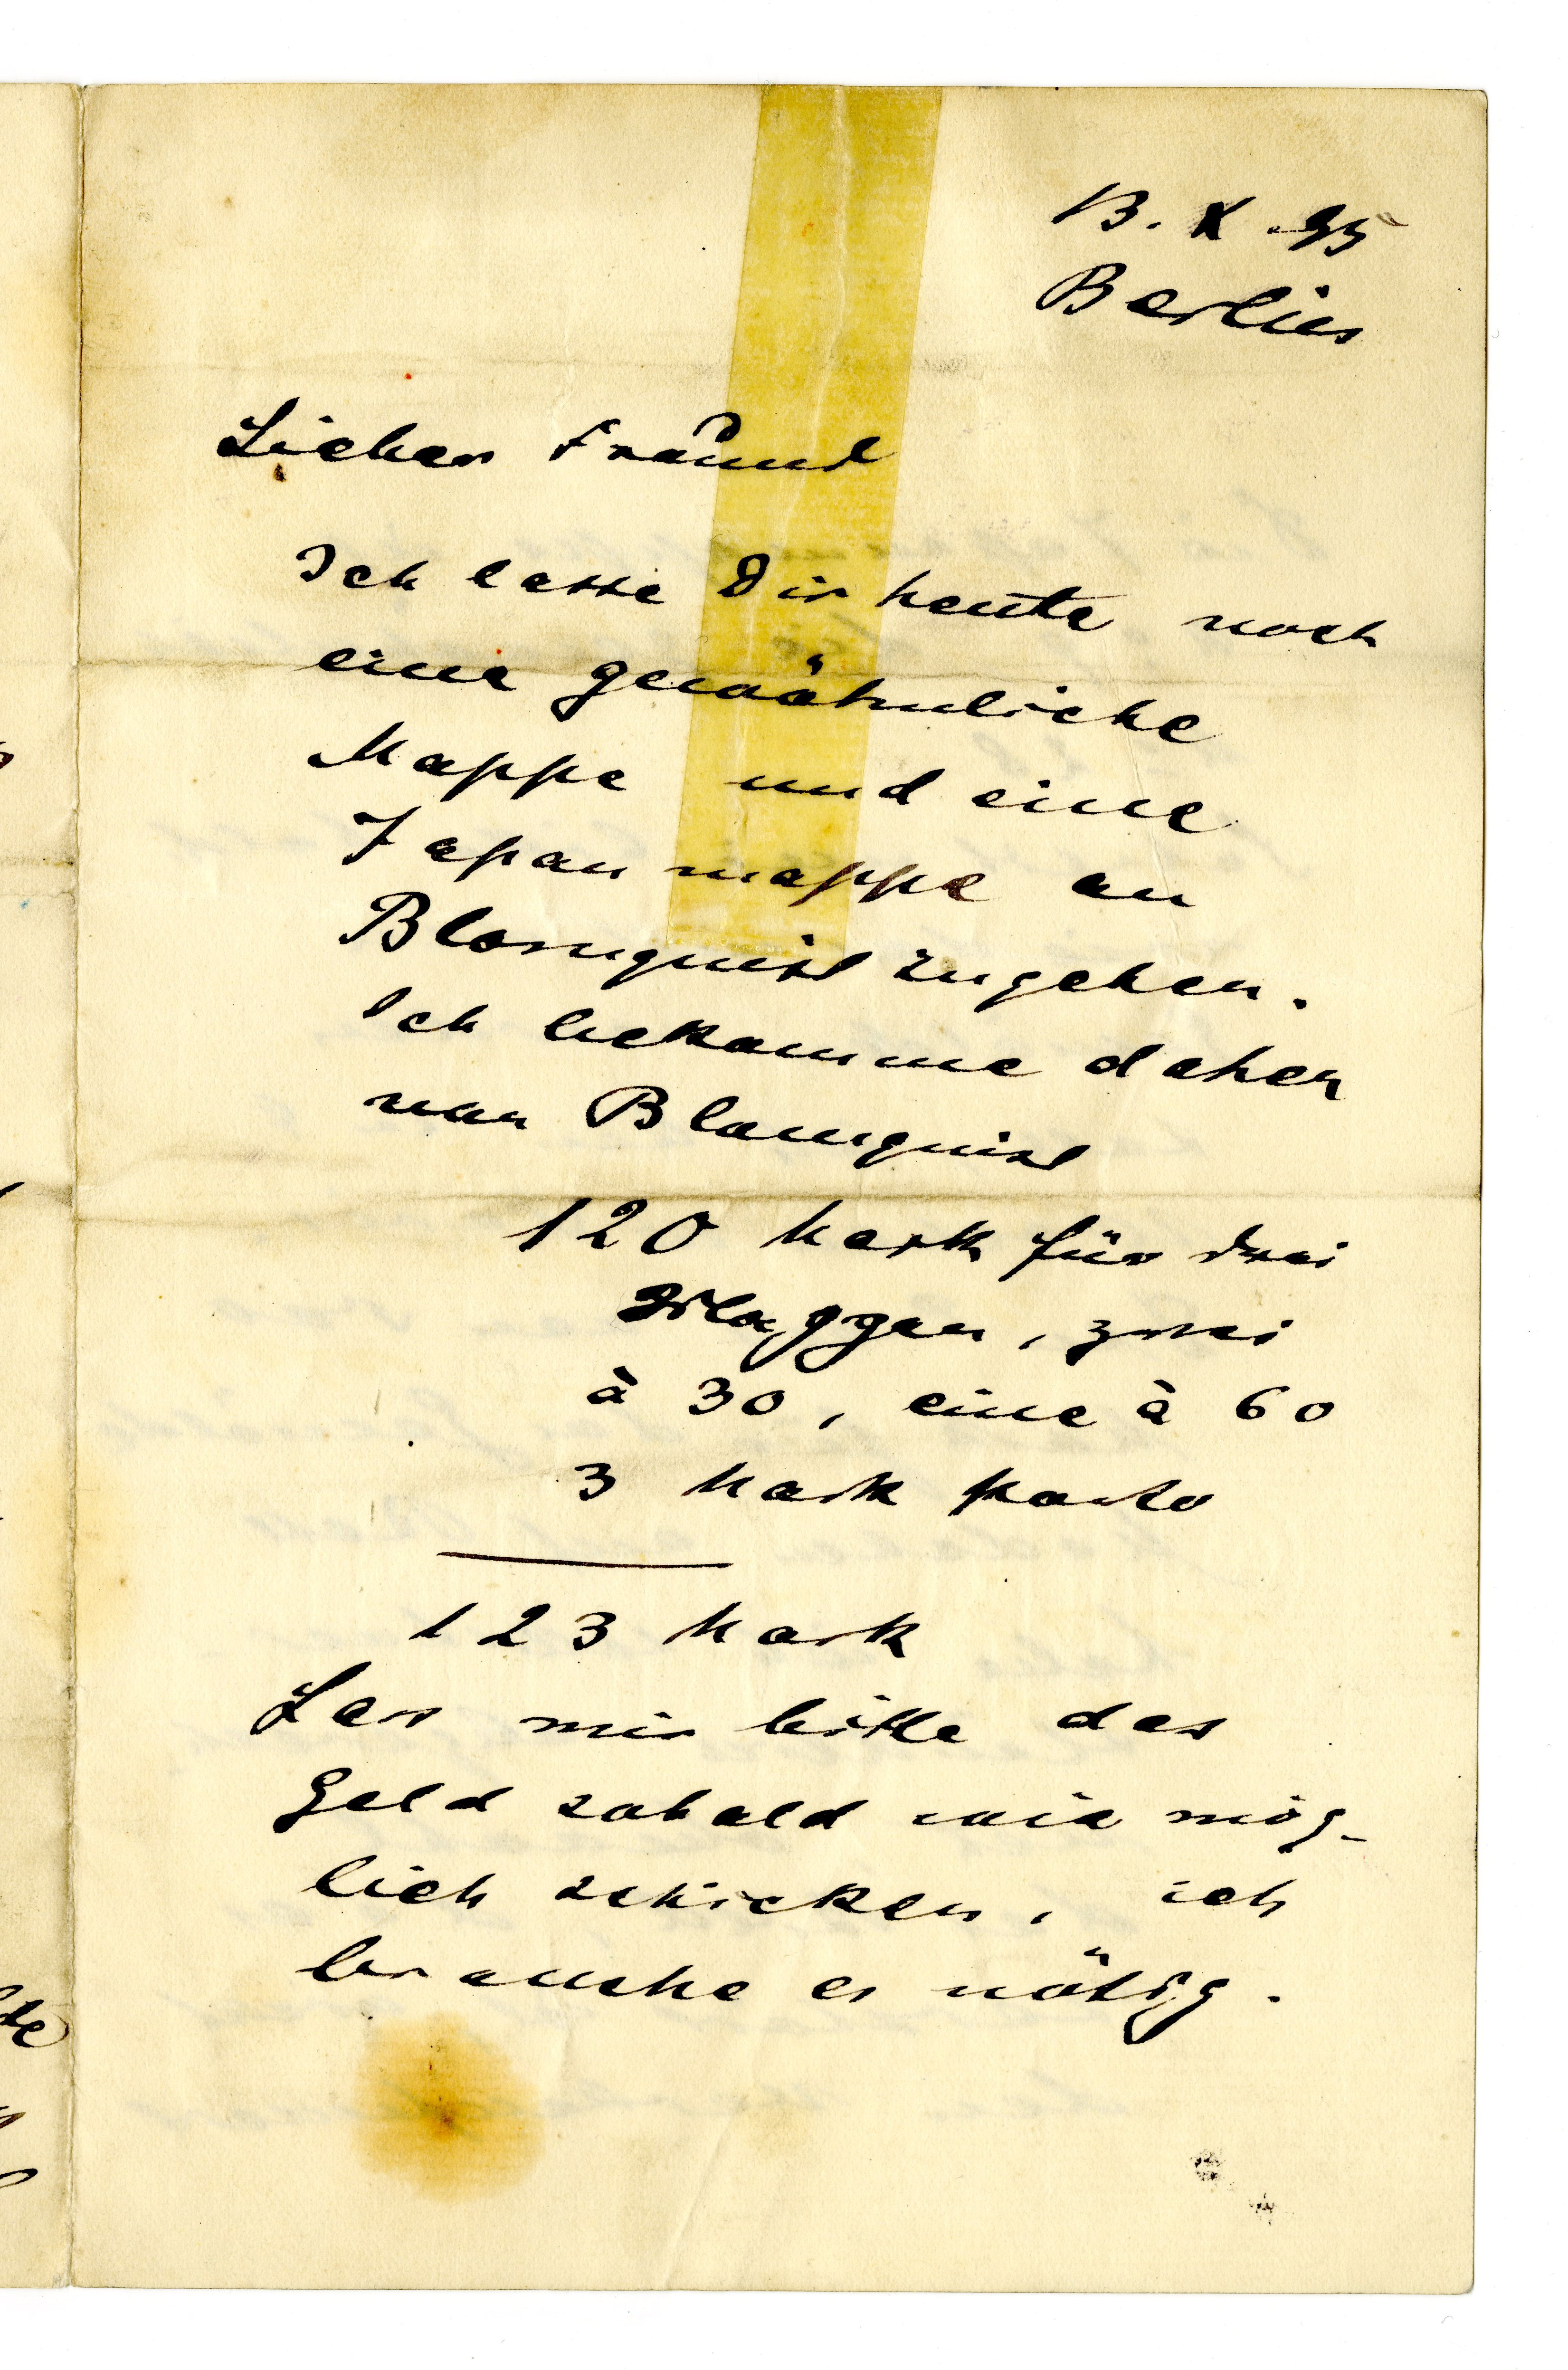 13. X. 95
Berlin
Lieber Freund
Ich lasse Dir heute noch
eine gewöhnliche
Mappe und eine
Japanmappe an
Blomquist zugehen.
Ich bekomme daher
von Blomquist
120 Mark für drei
Mappen, zwei
à 30, eine à 60
3 Mark Porto
123 Mark
Lass mir bitte das
Geld sobald wie mög-
lich schicken, ich
brauche es nötig.